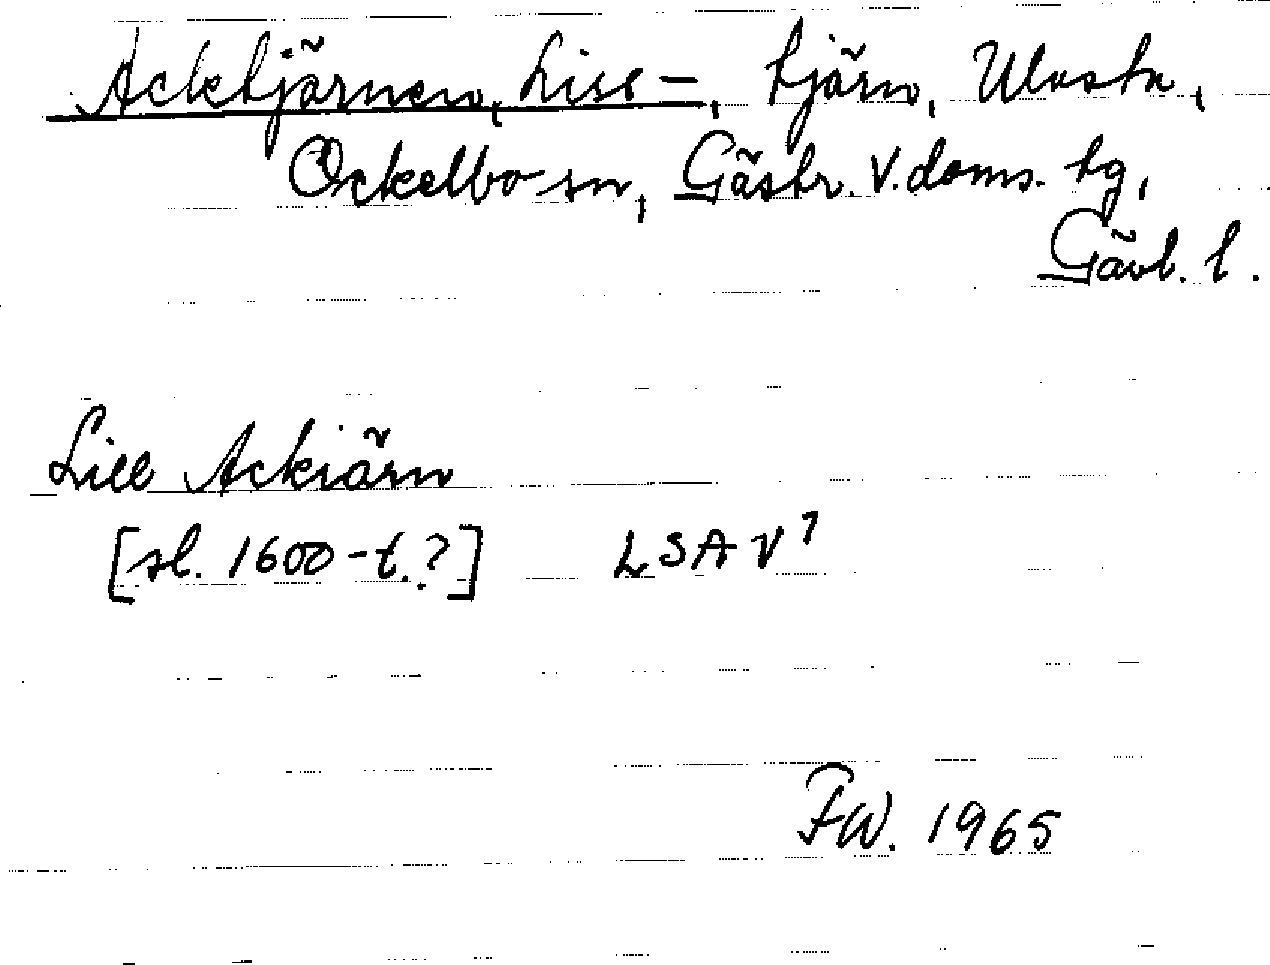 Acktjärnen, Lill –, tjärn, Ulvsta,
Ockelbo sn, Gästr. V. doms. tg,
Gävl. l.
Lill Ackiärn
[sl. 1600-t.?] LSA V⁷
FW. 1965